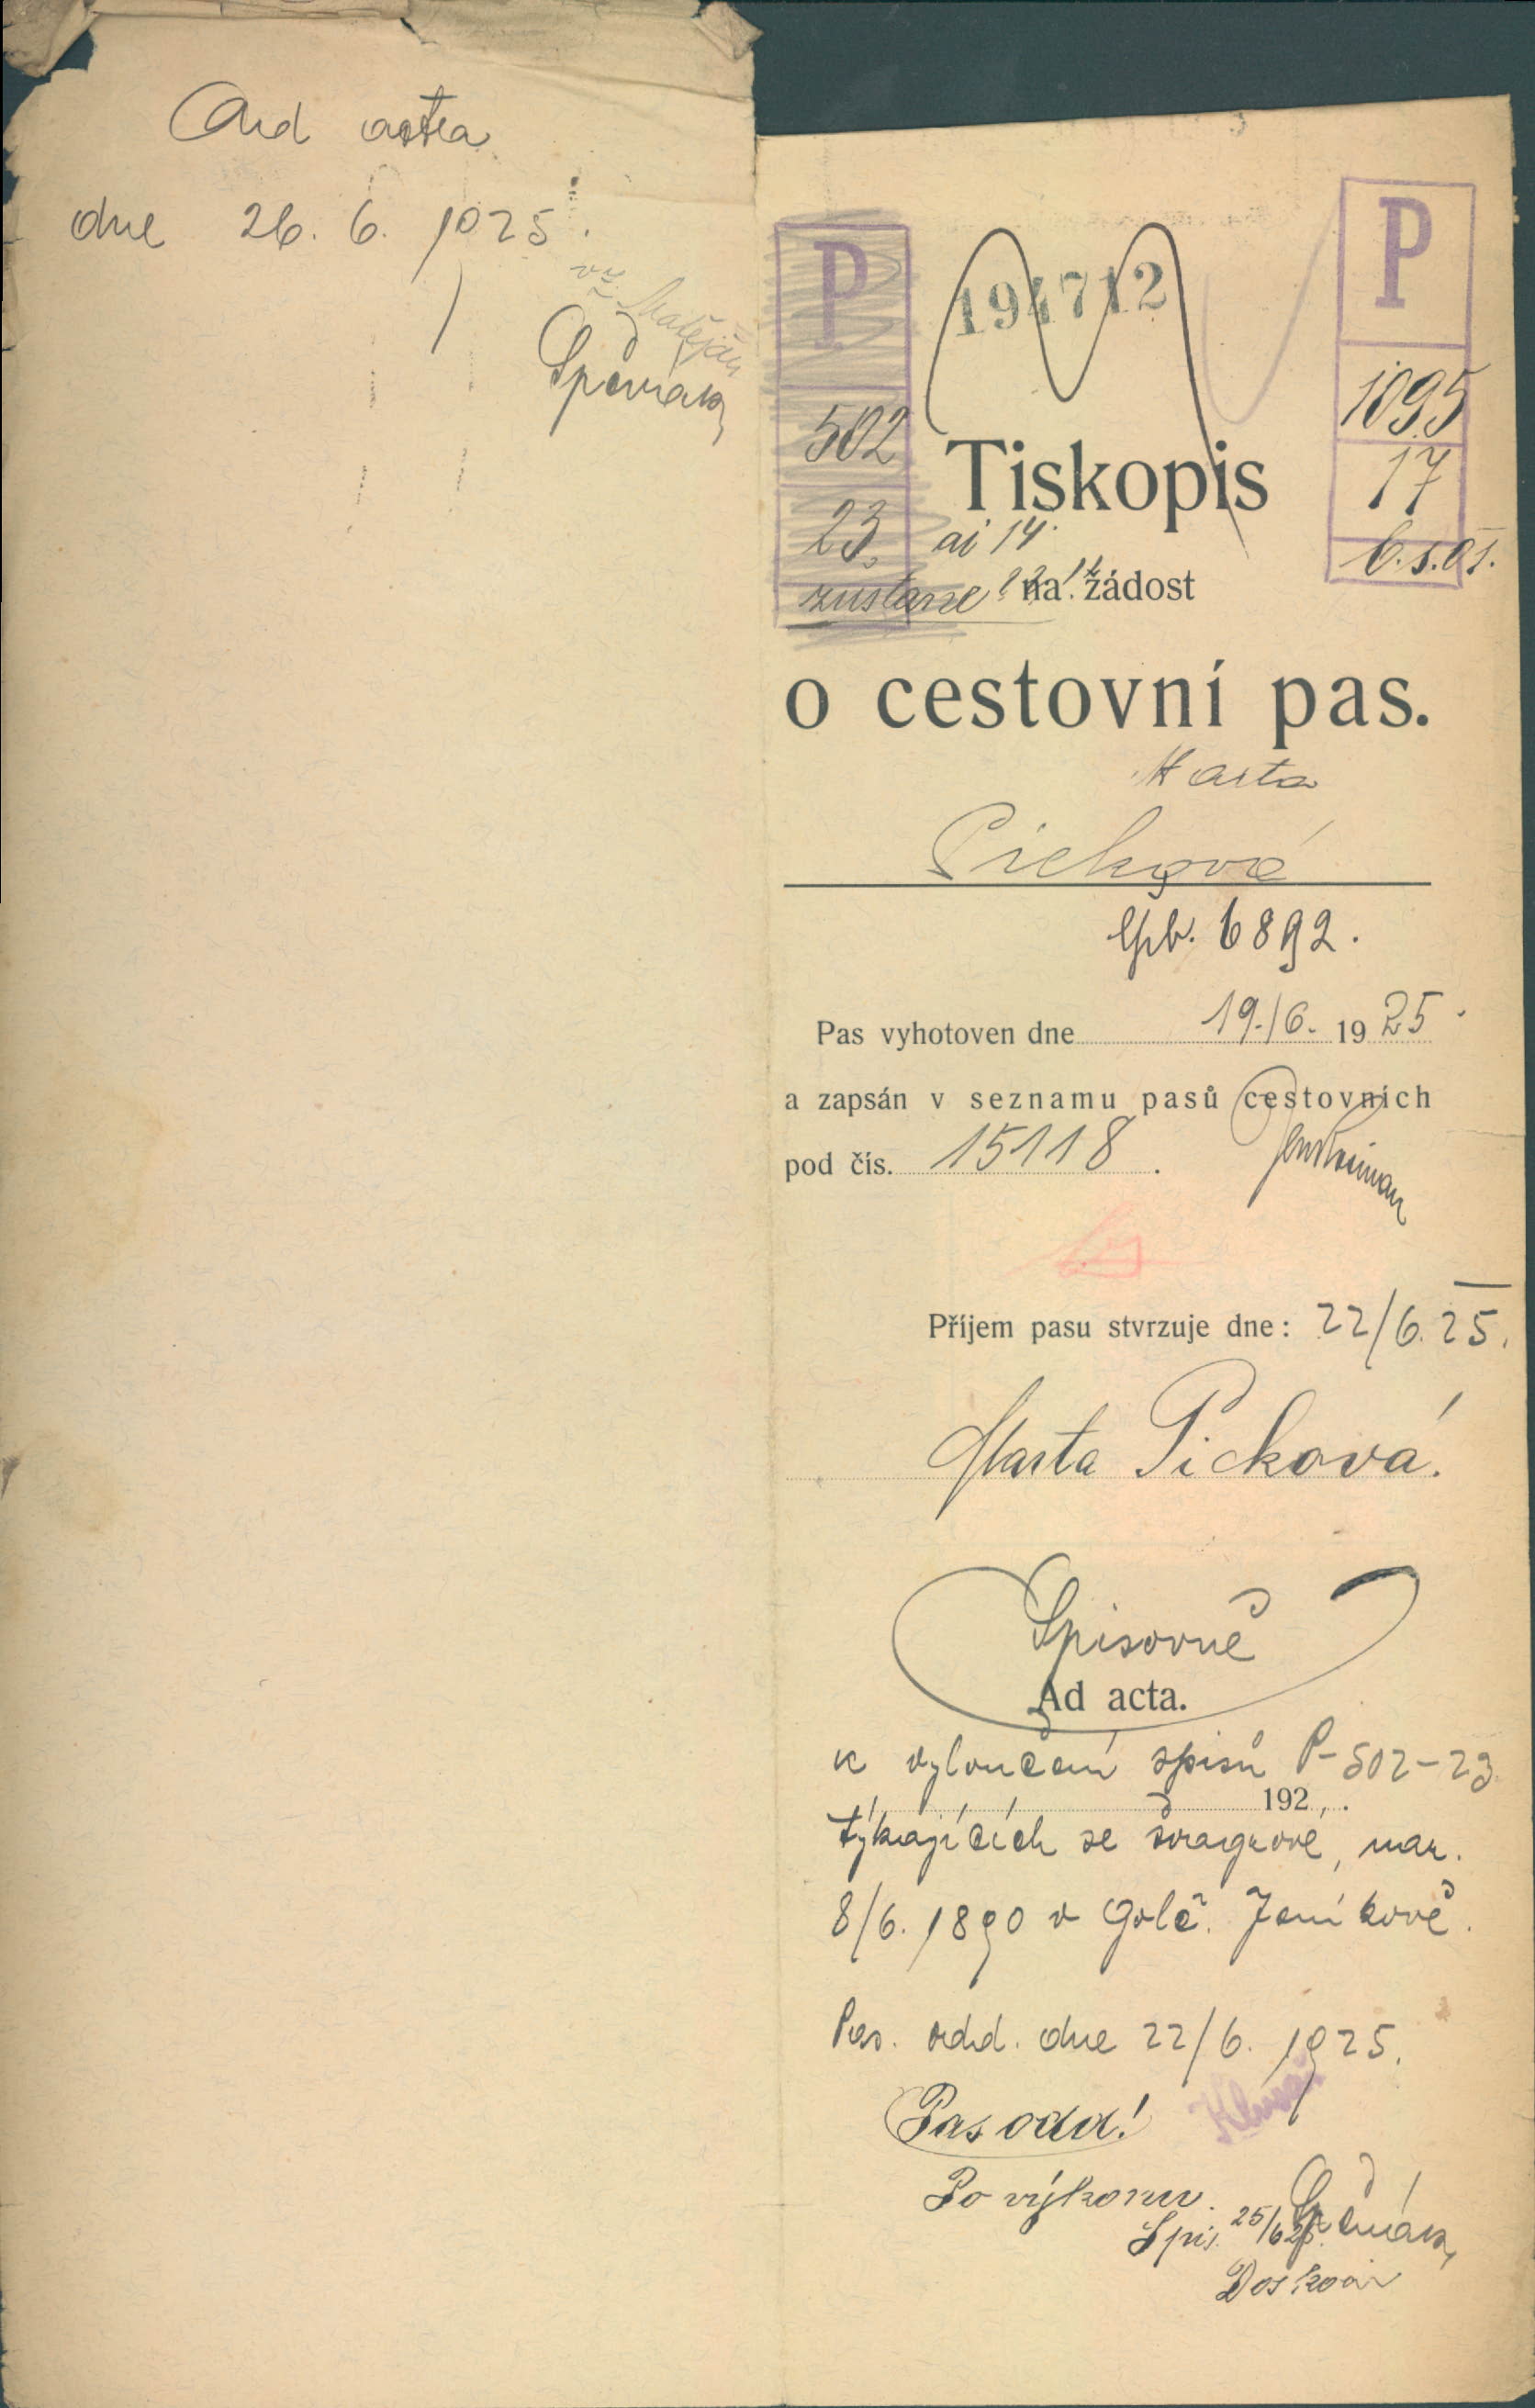 Ad acta
dne 26. 6. 1925.
P
502
23
zůstane
194712
P
1095
17
Tiskopis
na žádost
o cestovní pas.
Marta
Picková
6892.
Pas vyhotoven dne 19./6. 1925.
a zapsán v seznamu pasů cestovních
pod čís. 15118.
Příjem pasu stvrzuje dne: 22/6. 25.
Marta Picková.
Spisovně
Ad acta.
k vyloučení spisů P-502-23
192 .
týkajících se švagrové, nar.
8/6. 1890 v Golč. Jeníkově.
Pas. odd. dne 22/6. 1925.
Pas odd!
Po výkonu.
Spis. 25/6 25.